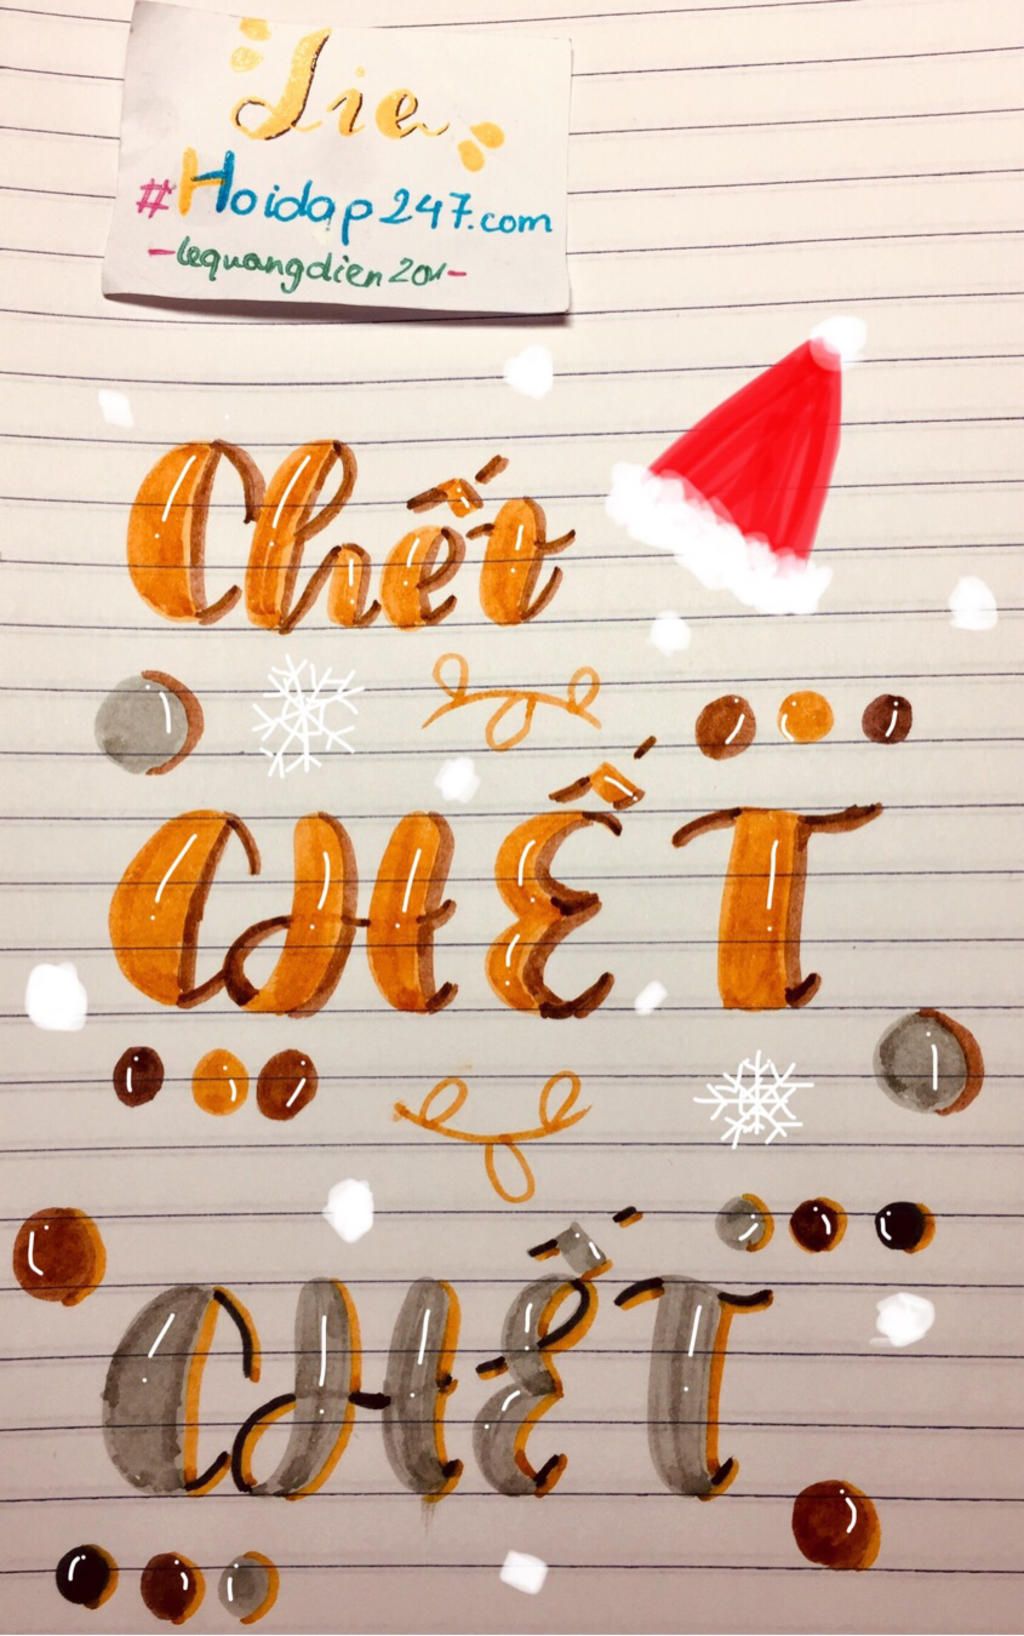 Lie
#Hoidap247.com
-lequangdien201-
Chết
CHẾT
CHẾT